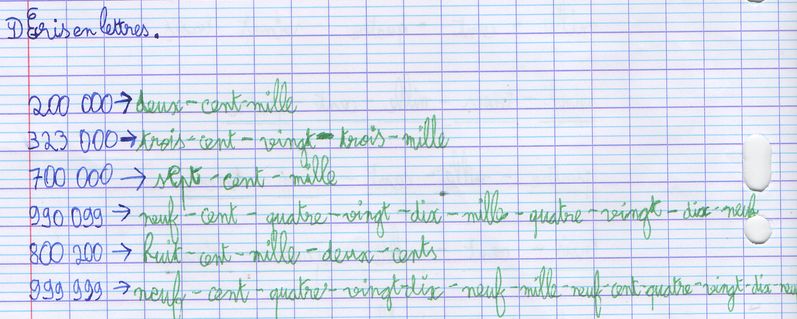 1) Écris en lettres.
200 000 → deux-cent-mille
323 000 → trois-cent-vingt-trois-mille
700 000 → sept-cent-mille
990 099 → neuf-cent-quatre-vingt-dix-mille-quatre-vingt-dix-neuf
800 200 → huit-cent-mille-deux-cents
999 999 → neuf-cent-quatre-vingt-dix-neuf-mille-neuf-cent-quatre-vingt-dix-neu